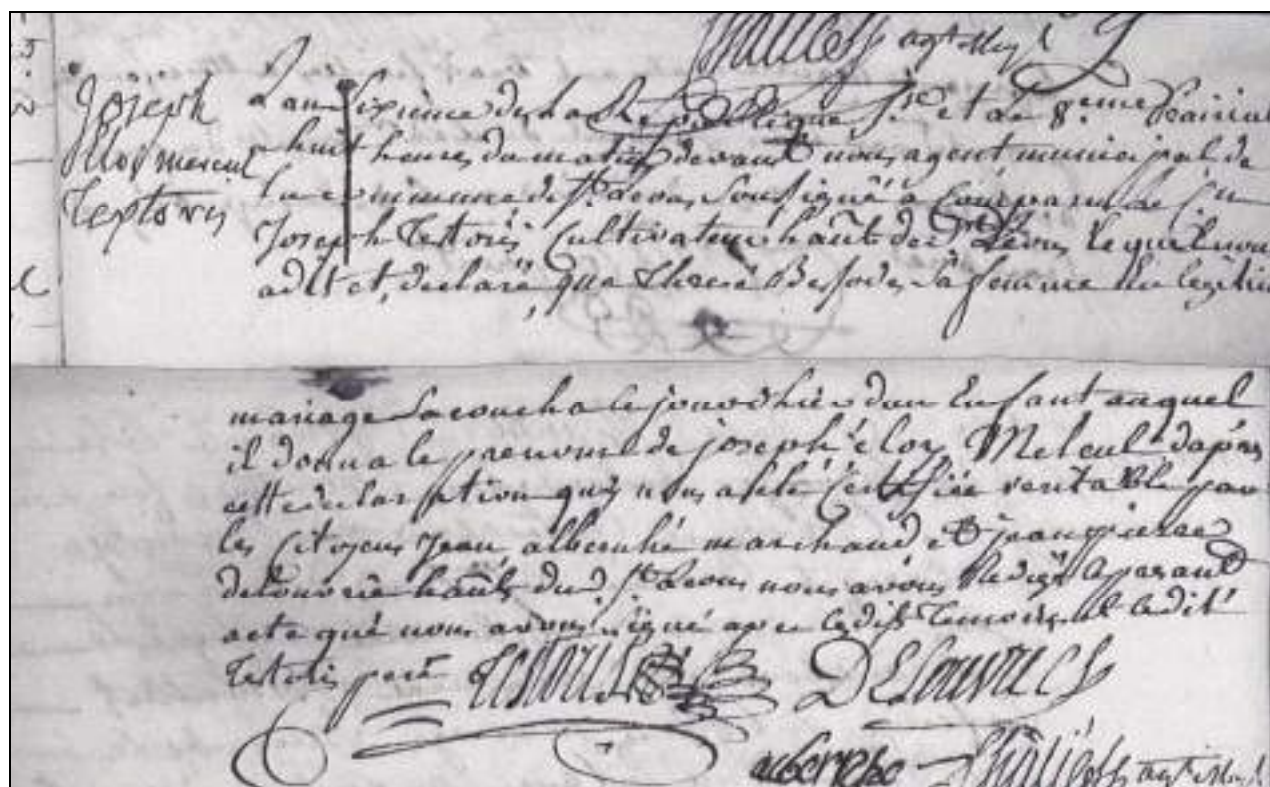 agt Mpl
Joseph
Textoris
L'an sixième de la République fse et le 8.eme Prairial
a huit heures du matin devant nous agent municipal de
la commune de St. Leons soussigné a comparu le Cen
Joseph Testoris Cultivateur habt. de St Léons lequel nous
a dit et declaré que Therese sa femme en legitime
mariage Sacoucha le jour d'hier d'un Enfant auquel
il donna le prenom de joseph éloy Meleul dapres
cette declaration qui nous a été Certifiée veritable par
les Citoyens Jean marchand et jean pierre
delouvrié habts. dud. St. Leons nous avons Redigé le presant
acte que nous avons signé avec lesdits temoins et ledit
Testoris pere Testoris Delouvrie
agt Mpl